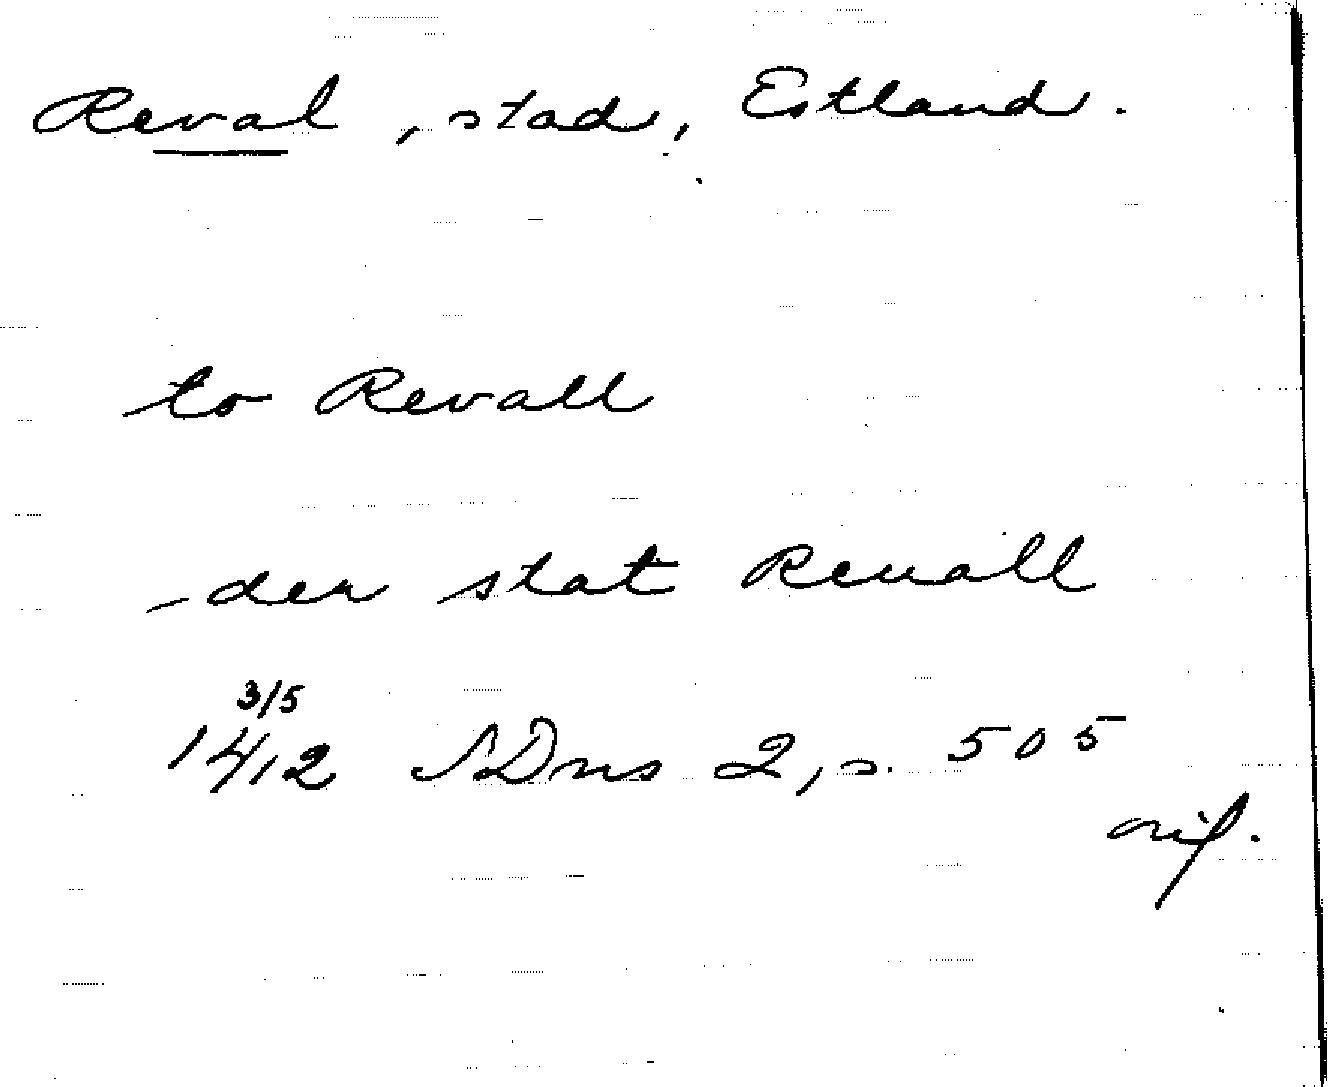 Reval, stad, Estland.
to Revall
der stat Reuall
3/5
1412 SDns 2, s. 505
orig.